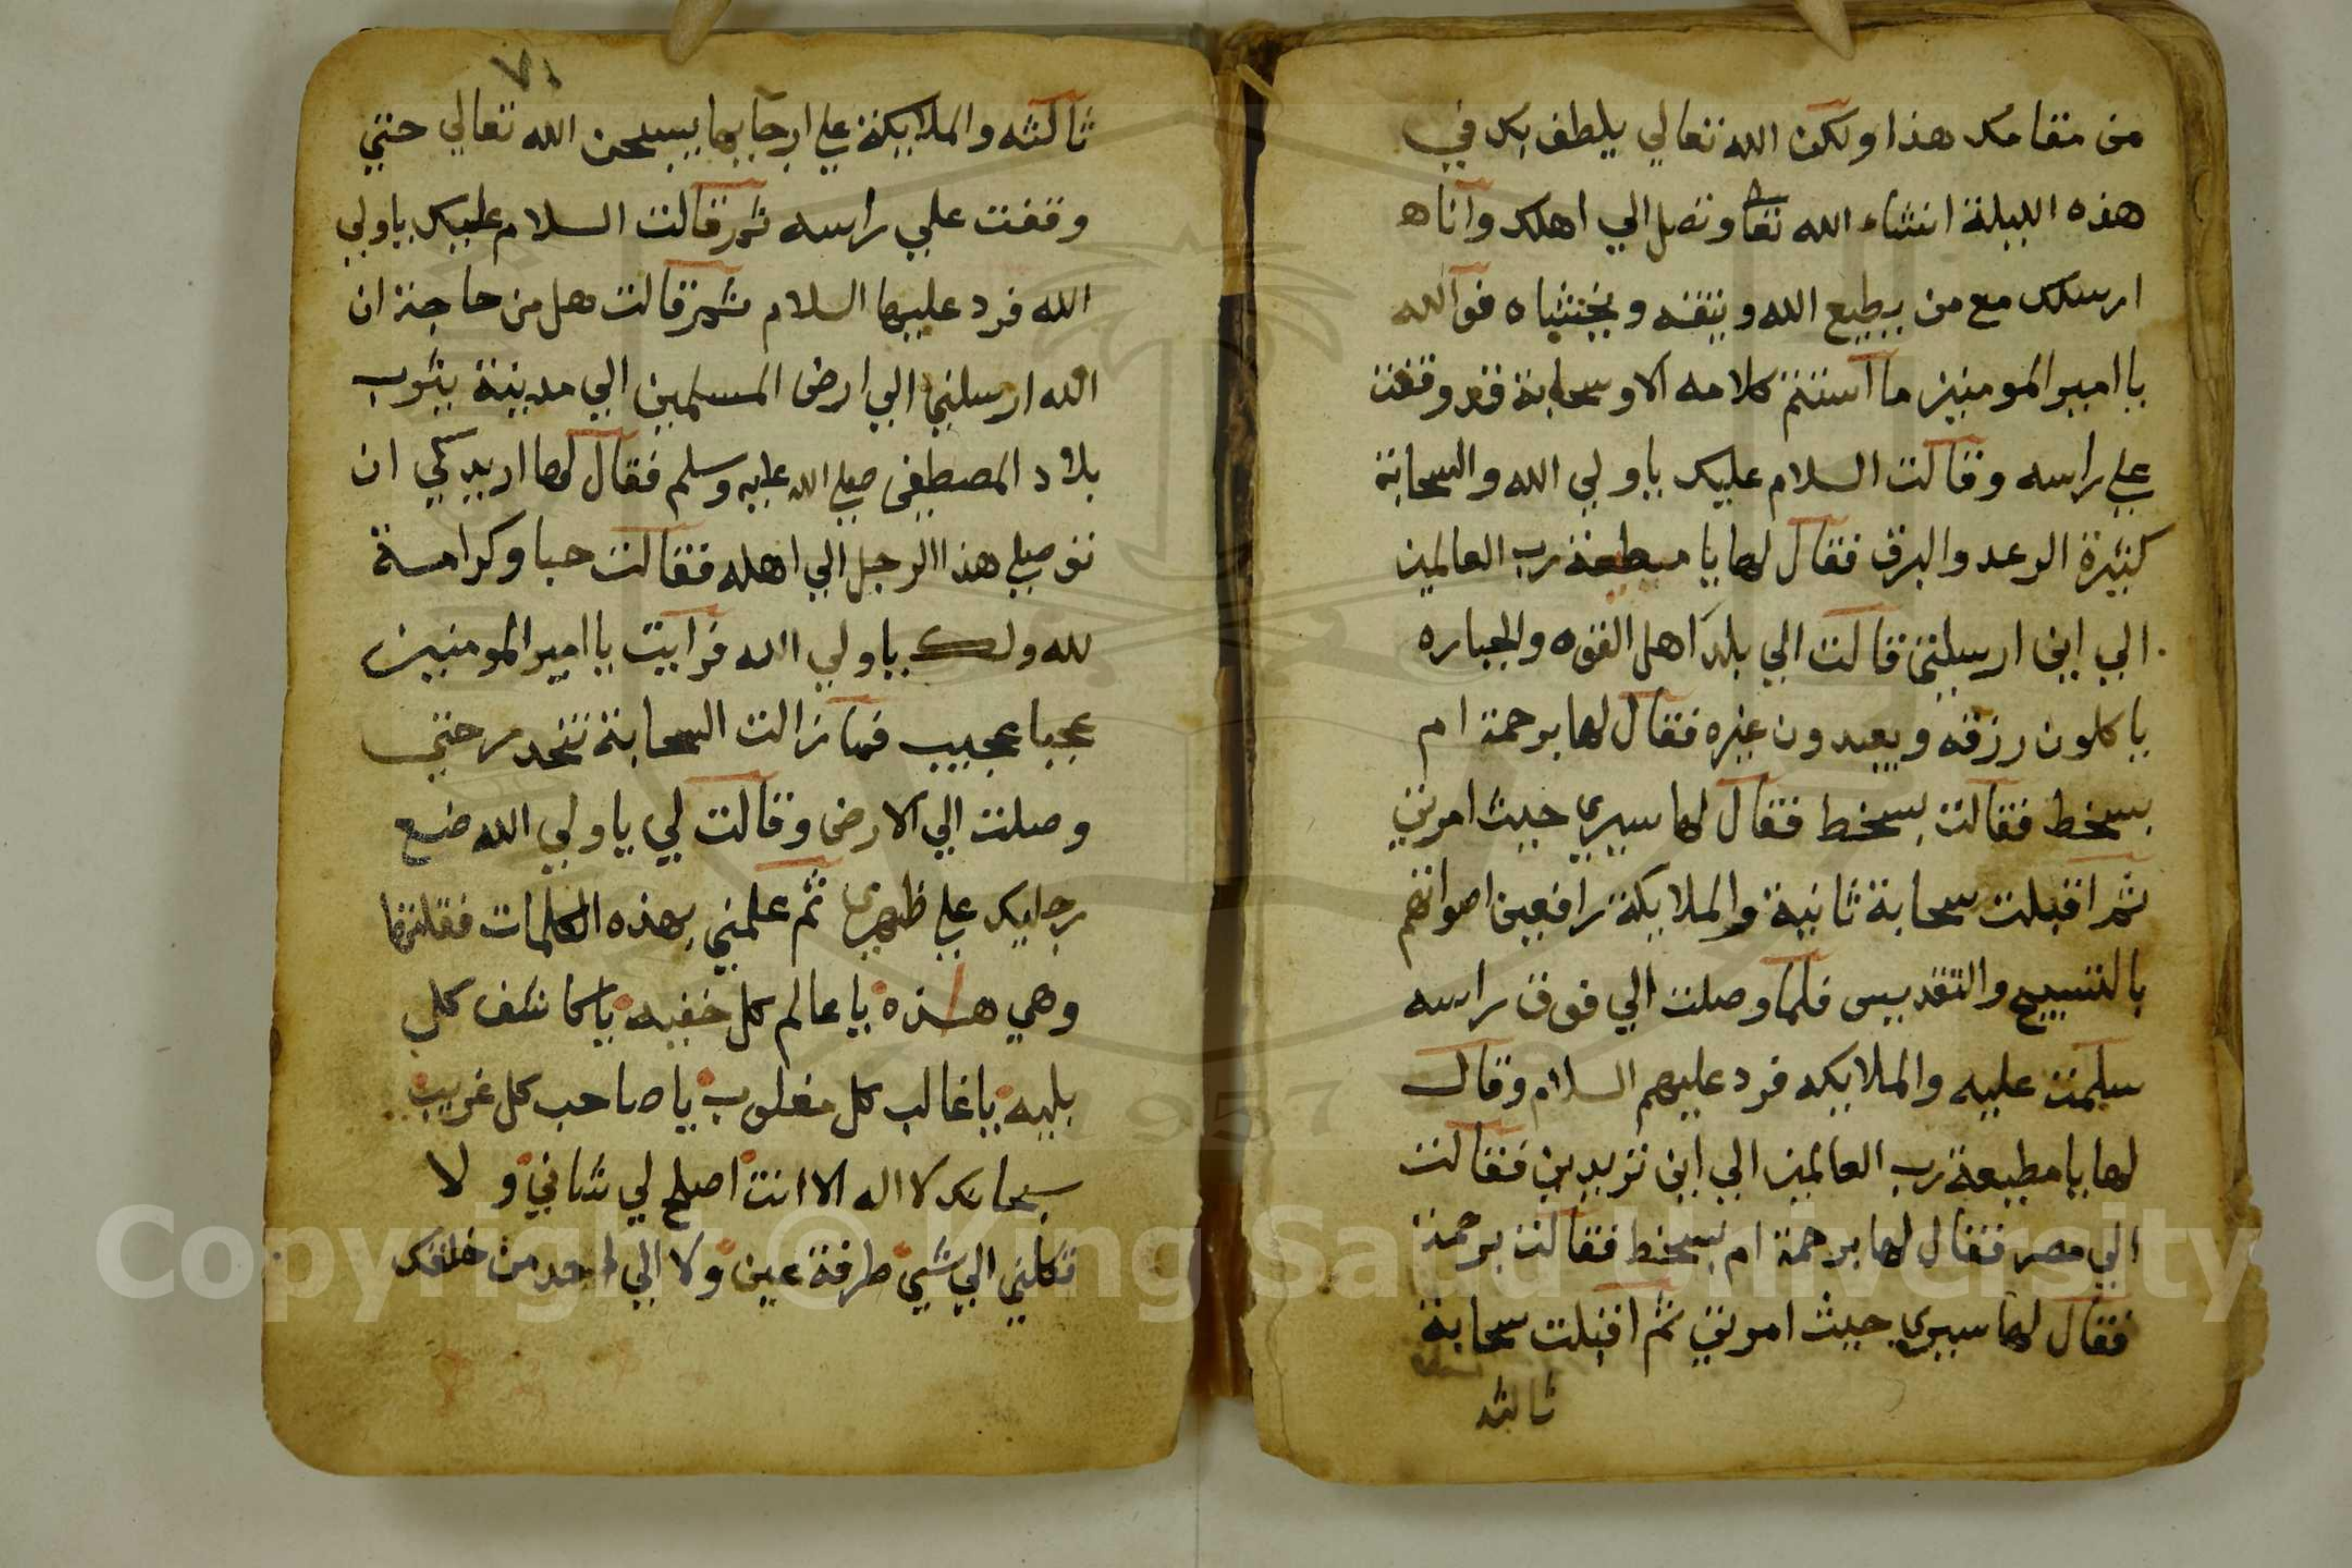 من مقامك هذا ولكن الله تعالي يلطف بك في
هذه الليلة انشاء الله تعا وتصل الي اهلك وانا ه
ارسلك مع من يطيع الله ويتقه ويخشاه فوالله
يا امير المومنين ما استتم كلامه الا وسحابة قد وقفت
علي راسه وقالت السلام عليك يا ولي الله والسحابة
كثيرة الرعد والبرق فقال لها يا مطيعة رب العالمين
الي اين ارسلتي قالت الي بلد اهل القوه والجباره
ياكلون رزقه ويعبدون غيره فقال لها برحمة ام
بسخط فقالت بسخط فقال لها سيري حيث امرتي
ثم اقبلت سحابة ثانية والملايكة رافعين اصواتهم
بالتسبيح والتقديس فلما وصلت الي فوق راسه
سلمت عليه والملايكه فرد عليهم السلام وقال
لها يا مطيعة رب العالمين الي اين تريدين فقالت
الي مصر فقال لها برحمة ام بسخط فقالت برحمة
فقال لها سيري حيث امرتي ثم اقبلت سحابة
ثالثه
٧١
ثالثه والملايكة علي ارجايها يسبحن الله تعالي حتي
وقفت علي راسه ثم قالت السلام عليك يا ولي
الله فرد عليها السلام ثم قالت هل من حاجة ان
الله ارسلني الي ارض المسلمين الي مدينة يثرب
بلاد المصطفي صلي الله عليه وسلم فقال لها اريدكي ان
توصلي هذا الرجل الي اهله فقالت حبا وكرامة
لله ولك يا ولي الله فرايت يا امير المومنين
عجبا عجيب فما زالت السحابة تنحدر حتي
وصلت الي الارض وقالت لي يا ولي الله ضع
رجليك علي ظهري ثم علمني بهذه الكلمات فقلتها
وهي هذه يا عالم كل خفيه يا كاشف كل
بليه يا غالب كل مغلوب يا صاحب كل غريب
سبحانك لا اله الا انت اصلح لي شاني ولا
تكلني الي شي طرفة عين ولا الي احد من خلقك
Copyright © King Saud University
1957